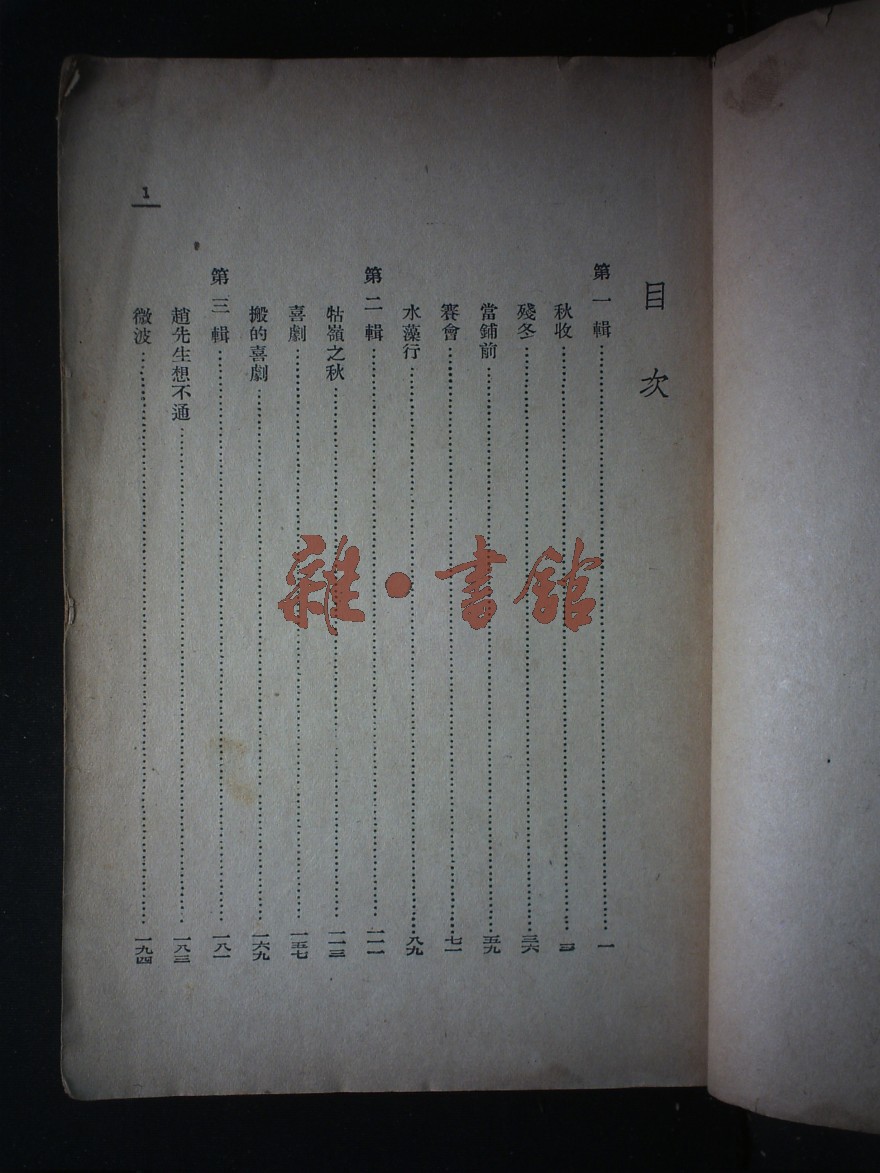 目次
第一輯……一
秋收……三
殘冬……三六
當鋪前……五九
賽會……七一
水藻行……八九
第二輯……一一一
牯嶺之秋……一一三
喜劇……一五七
搬的喜劇……一六九
第三輯……一八一
趙先生想不通……一八三
微波……一九四
1
雜·書館